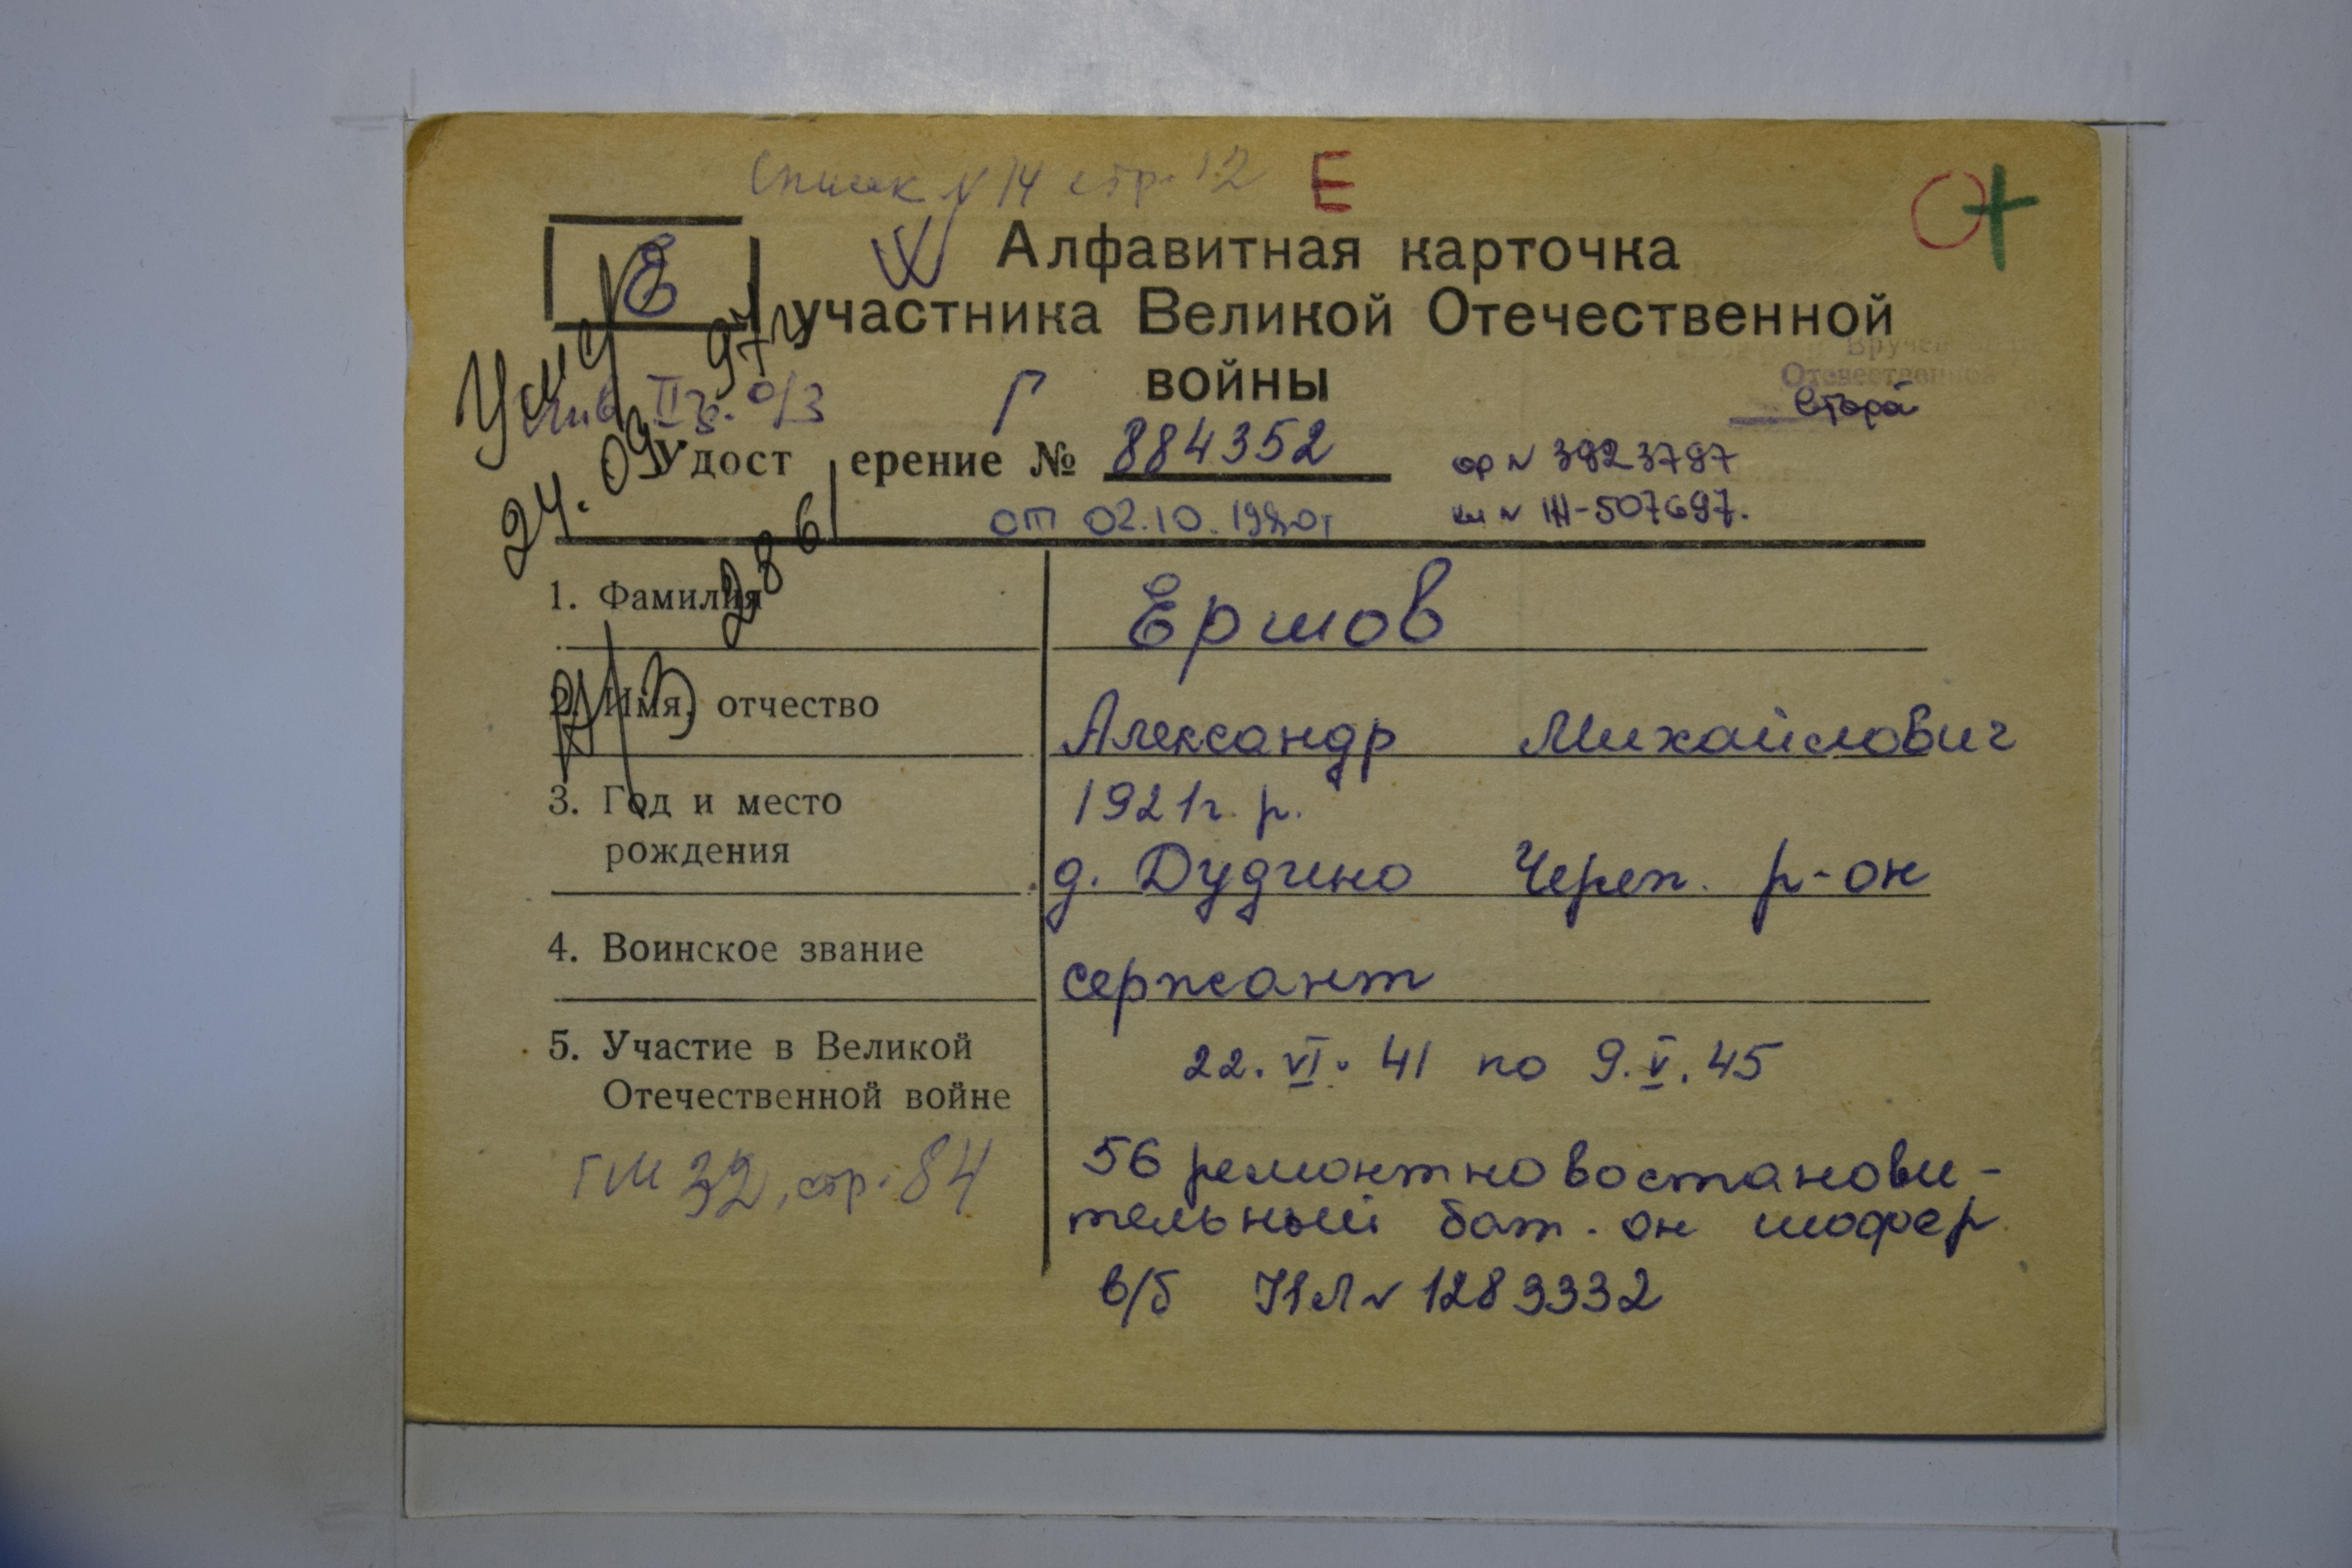 Список № 14 стр. 12 Е
Е Алфавитная карточка
участника Великой Отечественной
войны
Вручен
Отечественной
инв. II гр. о/з Г второй
Умер 24.09.97г
Удост ерение № 884352 ор № 3923797
от 02.10.1980г кн № 507697.
286
1. Фамилия Ершов
2. Имя, отчество Александр Михайлович
3. Год и место 1921г. р.
рождения д. Дудино Череп. р-он
4. Воинское звание сержант
5. Участие в Великой 22.VI.41 по 9.V.45
Отечественной войне
ГМ 32, стр. 84 56 ремонтновостанови-
тельный бат. он шофер
в/б № 1283332